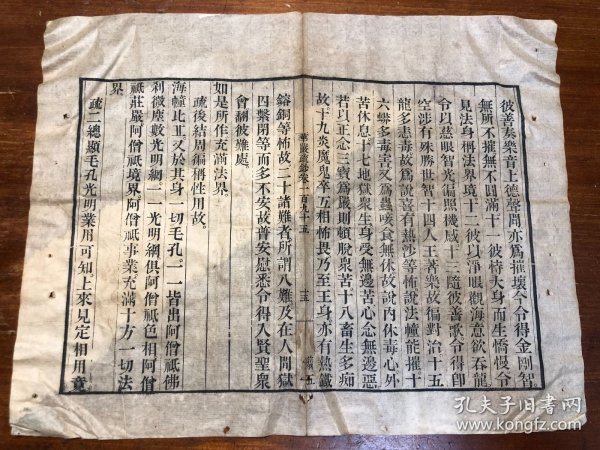 彼善奏樂音上德聲聞亦爲摧壞今令得金剛智
無所不摧無不圓滿十一彼恃大身而生憍慢令
見法身稱法界境十二彼以淨眼觀海意欲吞龍
令以慈眼智光徧照機感十三隨彼善歌令得卽
空涉有殊勝世智十四人王著樂故徧對治十五
龍多恚毒故爲說喜有熱沙等怖說法幢能摧十
六蟒多毒害又爲蟲唼食無休故說內休毒心外
苦休息十七地獄衆生身受無邊苦心念無邊惡
若以正念三寶爲嚴則頓脫衆苦十八畜生多痴
故十九炎魔鬼卒互相怖畏乃至王身亦有熱鐵
華嚴疏鈔卷一百九十五
十五
鎔銅等怖故二十諸難者所謂八難及在人間獄
囚繫閉等而多不安故普安慰悉令得入賢聖衆
會翻彼難處
如是所作充滿法界。
疏後結周徧稱性用故。
海幢比丘又於其身一切毛孔。一一皆出阿僧祇佛
刹微塵數光明網一一光明網俱阿僧祇色相阿僧
祇莊嚴阿僧祇境界阿僧祇事業充滿十方一切法
界
疏二總顯毛孔光明業用可知上來見定相用竟
孔夫子旧书网
www.kongfz.com